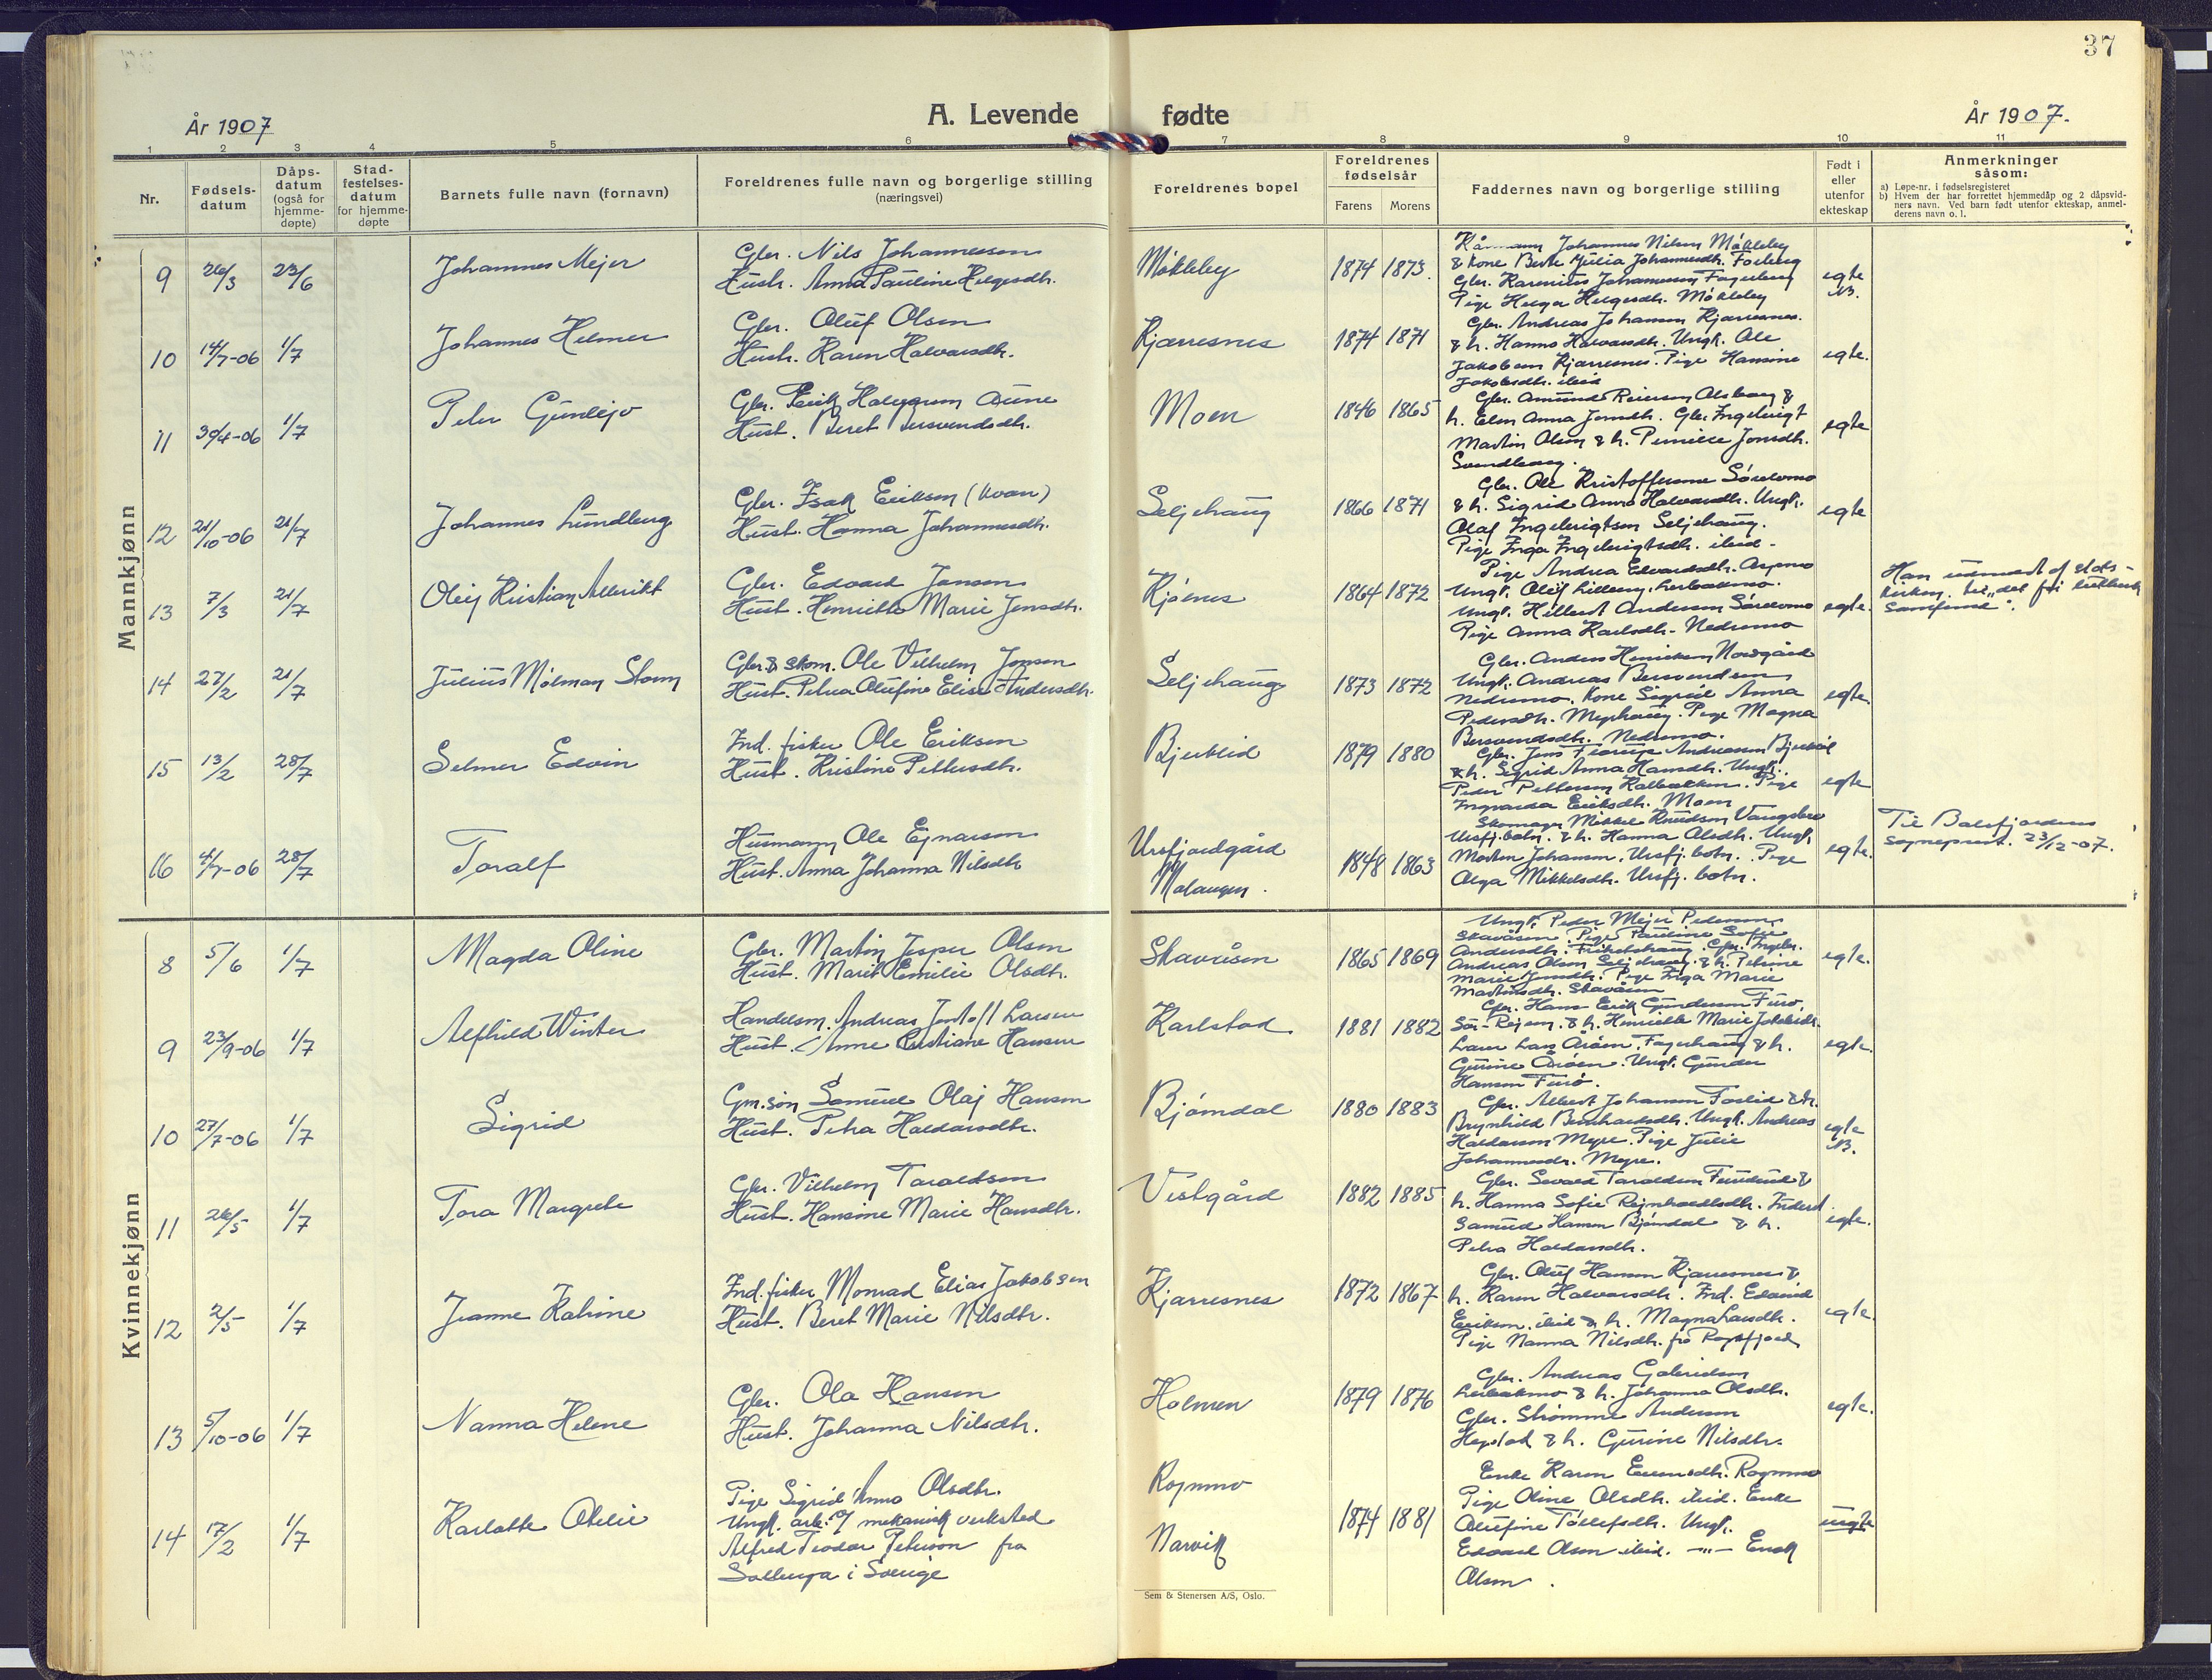 37
År 1907
A. Levende fødte
År 1907.
1 2 3 4 5 6 7 8 9 10 11
Nr.
Fødsels-
datum
Dåps-
datum
(også for
hjemme-
døpte)
Stad-
festelses-
datum
for hjemme-
døpte
Barnets fulle navn (fornavn)
Foreldrenes fulle navn og borgerlige stilling
(næringsvei)
Foreldrenes bopel
Foreldrenes
fødselsår
Farens Morens
Faddernes navn og borgerlige stilling
Født i
eller
utenfor
ekteskap
Anmerkninger
såsom:
a) Løpe-nr. i fødselsregisteret
b) Hvem der har forrettet hjemmedåp og 2 dåpsvid-
ners navn. Ved barn født utenfor ekteskap, anmel-
derens navn o. l.
Mannkjønn
9 26/3 23/6 Johannes Mejer
Gbr. Nils Johannessen
Hustr. Anna Pauline Helgesdtr.
Møkleby 1874 1873.
Johannes Nilsen Møkleby
& kone Berte Julia Johannesdtr. Fosberg
Gbr. Karenius Johannessen Fagerberg
Pige Helga Helgesdtr. Møkleby
egte
10 14/7-06 1/7 Johannes Helmer
Gbr. Oluf Olsen
Hustr. Karen Halvarsdtr.
Kjærresnes 1874 1871
Gbr. Andreas Johansen Kjærresnes.
& h. Hanna Halvarsdtr. Ungk. Ole
Jakobsen Kjærresnes. Pige Hansine
Jakobsdtr. ibid
egte.
11 30/4-06 1/7 Peter Gunlejv
Gbr. Peik Halvorsen Aune
Hust. Beret Bersvendsdtr.
Moen 1846 1865
Gbr. Amund Reiersen Alsborg &
h. Elen Anna Jonsdtr. Gbr. Ingebrigt
Martin Olsen & h. Pernille Jonsdtr.
Svendborg.
egte
12 21/10-06 21/7 Johannes Lundberg
Gbr. Isak Eriksen (kvæn)
Hust. Hanna Johannesdtr.
Seljehaug 1866 1871
Gbr. Ole Kristoffersen Sørelvmo
& h. Sigrid Anna Halvarsdtr. Ungk.
Olaf Ingebrigtsen Seljehaug.
Pige Inga Ingebrigtsdtr. ibid -
egte
13 7/3 21/7 Olej Kristian Albrikt
Gbr. Edvard Jensen
Hust. Henriette Marie Jensdtr.
Kjosnes 1864 1872
Pige Andrea Edvardsdtr. Aspmo
Ungk. Oluf Lilleeng, Leirbakmo.
Ungk. Hilbert Andersen Sørelvmo
Pige Anna Karlsdtr. Nedremo
egte.
Han udmeldt af stats-
kirken til „det fri lutherske
samfund".
14 27/2 21/7 Julius Molman Storm
Gbr. & skom. Ole Vilhelm Jensen
Hust. Petra Olufine Elise Andersdtr.
Seljehaug 1873 1872
Gbr. Anders Henriksen Nordgård
Ungk. Andreas Bersvendsen
Nedremo. Kone Sigrid Anna
Pedersdtr. Myrhaug. Pige Magna
Bersvendsdtr. Nedremo.
egte.
15 13/2 28/7 Selmer Edvin
Ind. fisker Ole Eriksen
Hust. Kristine Pettersdtr.
Bjerklid 1879 1880
Gbr. Jens Andreassen Bjerklid
& h. Sigrid Anna Hansdtr. Ungk.
Peder Pettersen Kalbakken. Pige
Ingvarda Eriksdtr. Moen
egte
16 4/7-06 28/7 Toralf
Husmann Ole Ejnarsen
Hust. Anna Johanna Nilsdtr
Ursfjordgård
Malangen. 1848 1863
Skomager Mikkel Knudsen
Ursfj.botn. & h. Hanna Olsdtr. Ungk.
Morten Johansen, Ursfj. botn. Pige
Olga Mikkelsdtr. Ursfj. botn.
egte.
Til Balsfjordens
sogneprest. 23/12-07.
Kvinnekjønn
8 5/6 1/7 Magda Oline
Gbr. Martin Jesper Olsen
Hust. Marit Emilie Olsdtr.
Skavåsen 1865 1869
Ungk. Peder Mejer Pedersen
Skavåsen. Pige Pauline Sofie
Andersdtr. Gbr. Ingebr.
Andreas Olsen Seljehaug & h. Petrine
Marie Jonsdtr. Pige Inga Marie
Martinsdtr. Skavåsen
egte.
9 23/9-06 1/7 Alfhild Winter
Handelsm. Andreas Jentoft Larsen
Hust. Anne Kristiane Hansen
Karlstad 1881 1882
Gbr. Hans Erik Gundersen Furø,
Sør-Rejsen. & h. Henrikke Marie Jakobsdtr.
Lars Larsen Årøen, Fagerhaug & h.
Gurine Årøen. Ungk. Gunder
Hansen Furø.
egte.
10 27/7-06 1/7 Sigrid
Gm.søn Samuel Olaj Hansen
Hust. Petra Haldorsdtr.
Bjørndal 1880 1883
Gbr. Albert Johansen Foslid & h.
Brynhild Bernhardsdtr. Ungk. Andreas
Haldorsen Myre. Pige Julie
Johannesdtr. Myre.
egte
11 26/5 1/7 Tora Margrete
Gbr. Vilhelm Taraldsen
Hust. Hansine Marie Hansdtr.
Vestgård 1882 1885
Gbr. Sevald Taraldsen Furulund &
h. Hanna Sofie Rejnholdtsdtr. Inderst
Samuel Hansen Bjørndal & h.
Petra Haldorsdtr.
egte.
12 2/5 1/7 Jeanne Katrine
Ind. fisker Monrad Elias Jakobsen
Hust. Beret Marie Nilsdtr.
Kjærresnes 1872 1867
Gbr. Oluf Hansen Kjærresnes &
h. Karen Halvorsdtr. Ind. Edvard
Eriksen, ibid & h. Magna Larsdtr.
Pige Nanna Nilsdtr. fra Rossfjord
egte.
13 5/10-06 1/7 Nanna Helene
Gbr. Ola Hansen
Hust. Johanna Nilsdtr.
Holmen 1879 1876
Gbr. Andreas Gabrielsen
Leirbakmo & h. Johanna Olsdtr.
Gbr. Strømme Andersen
Hegstad & h. Gurine Nilsdtr.
egte.
14 17/2 1/7 Karlotte Otelie
Pige Sigrid Anna Olsdtr.
Ungk. arb. v/ mekanisk verksted
Alfred Teodor Peterson fra
i Sverige
Rognmo
Narvik 1874 1881
Enke Karen Evensdtr. Rognmo
Pige Oline Olsdtr. ibid. Enke
Olufine Tollefsdtr. Ungk.
Edvard Olsen ibid. -"- Enok
Olsen.
uegte
Sem & Stenersen A/S, Oslo.